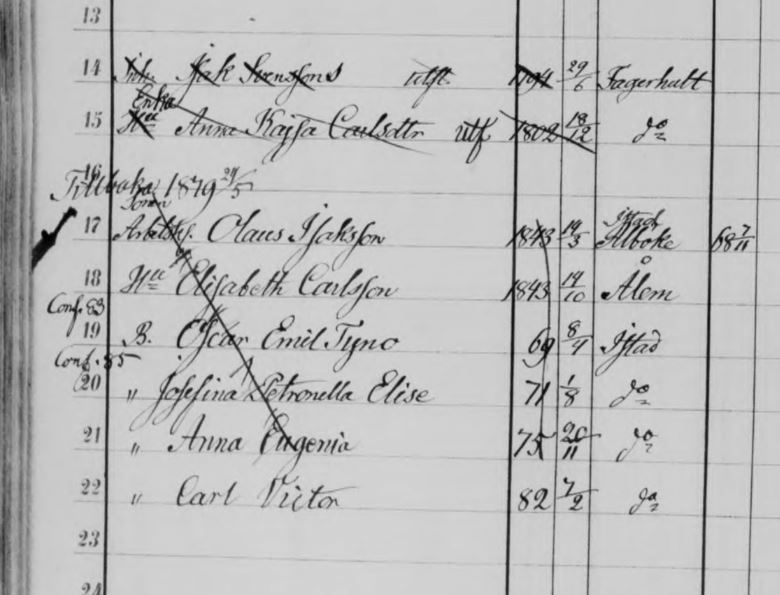 13
14 Isak Svenssons utft. 1794 29/6 Fagerhult
Enka
15 Hu Anna Kajsa Carlsdtr utf 1802 18/12 do
16
Tillbaka 1879 24/5
Sonen Istad
17 Arbetsk. Olaus Isaksson 1843 14/3 Alböke 68 7/11
18 Hu Elisabeth Carlsson 1843 14/10 Ålem
Conf. 83
19 B. Oscar Emil Tyno 69 8/4 Istad
Conf. 85
20 " Josefina Petronella Elise 71 1/8 do
21 " Anna Eugenia 75 20/11 do
22 " Carl Victor 82 7/2 do
23
24